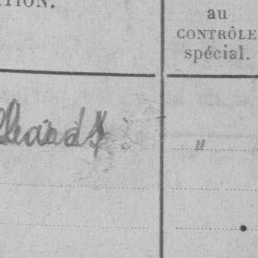 TION.
au
CONTRÔLE
spécial.
"